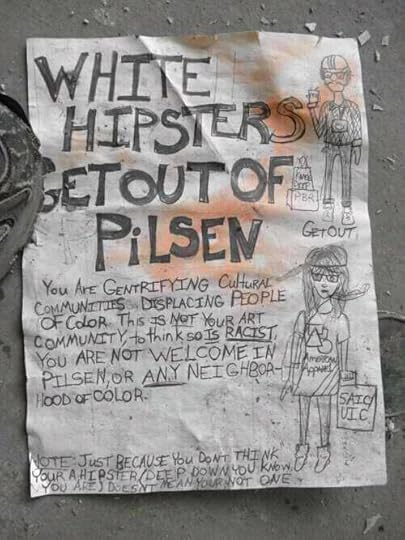 WHITE
HIPSTERS
GET OUT OF
PiLSEN
PBR
GET OUT
You ARE GENTRIFYING CulTuRAL
COMMUNITIES DISPLACING PEOPLE
OF COLOR. This IS NOT YOUR ART
COMMUNITY, to think so IS RACIST.
YOU ARE NOT WELCOME IN
PILSEN, OR ANY NEIGHBOR-
HOOD OF COLOR.
American
Apparel
SAIC/
UIC
NOTE: JUST BECAUSE YOU DONT THINK
YOUR A HIPSTER (DEEP DOWN YOU KNOW
YOU ARE) DOESNT MEAN YOUR NOT ONE.